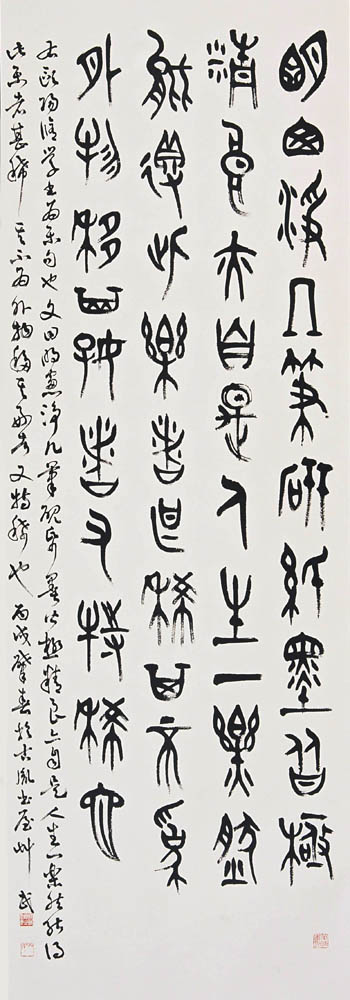 明窗淨几筆硯紙墨皆極
精良亦自是人生一樂然
能得此樂者甚稀其不為
外物移其好者又特稀也
右歐陽脩学書為樂句也文曰明窗淨几筆硯紙墨皆極精良亦自是人生一樂然能得
此樂者甚稀其不為外物移其好者又特稀也丙戌肇春於古風書屋艸武